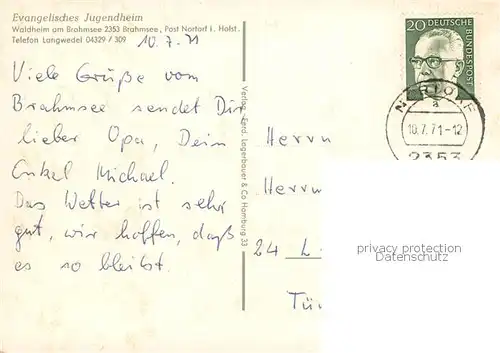 Evangelisches Jugendheim
Waldheim am Brahmsee 2353 Brahmsee, Post Nortorf i. Holst.
Telefon Langwedel 04329 / 309
10.7.71
Viele Grüße vom
Brahmsee sendet Dir
lieber Opa, Dein
Enkel Michael.
Das Wetter ist sehr
gut, wir hoffen, daß
es so bleibt.
Verlag Ferd. Lagerbauer & Co Hamburg 33
20 DEUTSCHE
BUNDESPOST
NORTORF
a
10.7.71-12
2353
Herrn
24
privacy protection
Datenschutz